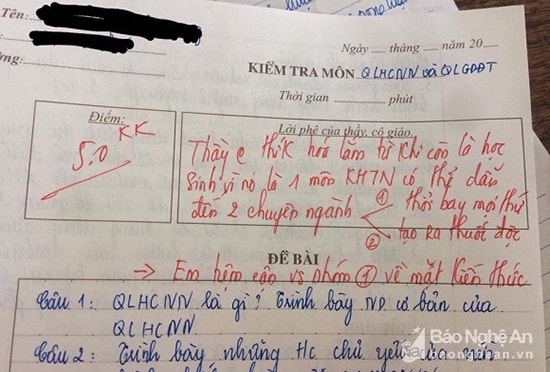 Tên:
Ngày tháng năm 20
KIỂM TRA MÔN QLHCNN và QLGDĐT
Thời gian phút
Điểm:
5,0 KK
Lời phê của thầy, cô giáo
Thầy e thík hoá lắm từ khi còn là học
sinh vì nó là 1 môn KHTN có thể dẫn
đến 2 chuyên ngành ① thổi bay mọi thứ
② tạo ra thuốc độc
ĐỀ BÀI
→ Em tiệm cận vs nhóm ① về mặt kiến thức
Câu 1: QLHCNN là gì? Trình bày ND cơ bản của
QLHCNN.
Câu 2: Trình bày những Hc chủ yếu
Báo Nghệ An
baonghean.vn